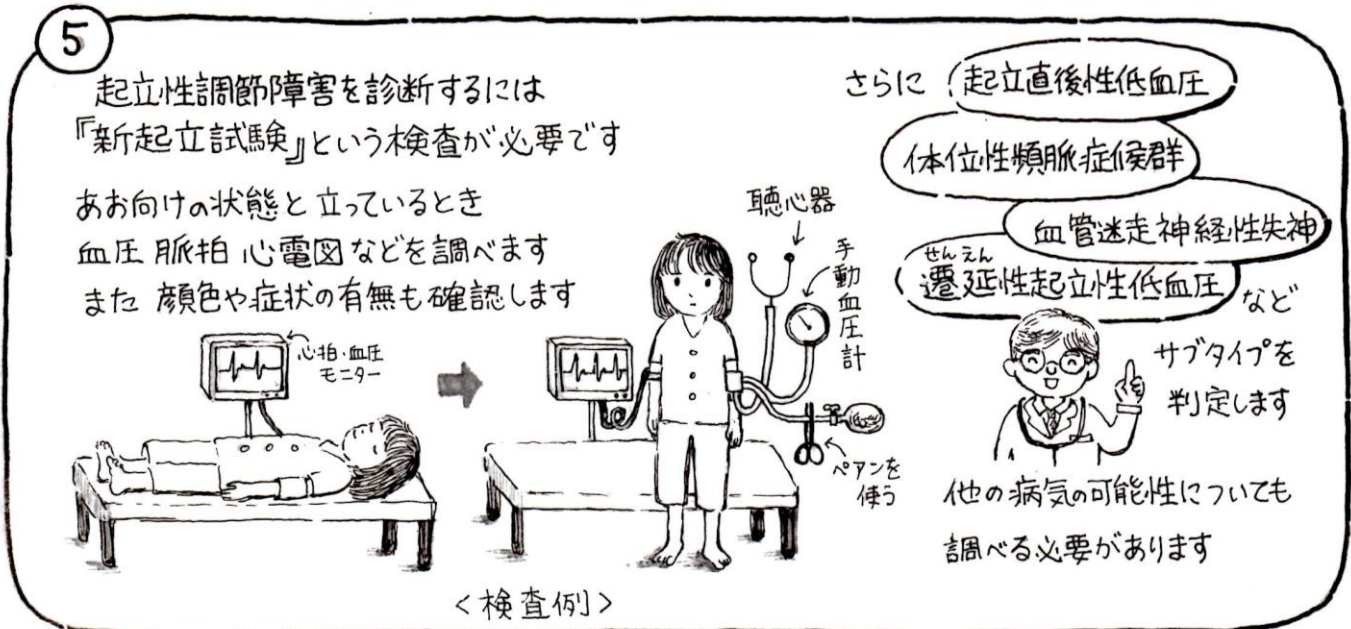 5
起立性調節障害を診断するには
『新起立試験』という検査が必要です
あお向けの状態と 立っているとき
血圧 脈拍 心電図 などを調べます
また 顔色や症状の有無も確認します
心拍・血圧
モニター
聴心器
手動血圧計
ペアンを
使う
<検査例>
さらに 起立直後性低血圧
体位性頻脈症候群
血管迷走神経性失神
せんえん
遷延性起立性低血圧 など
サブタイプを
判定します
他の病気の可能性についても
調べる必要があります